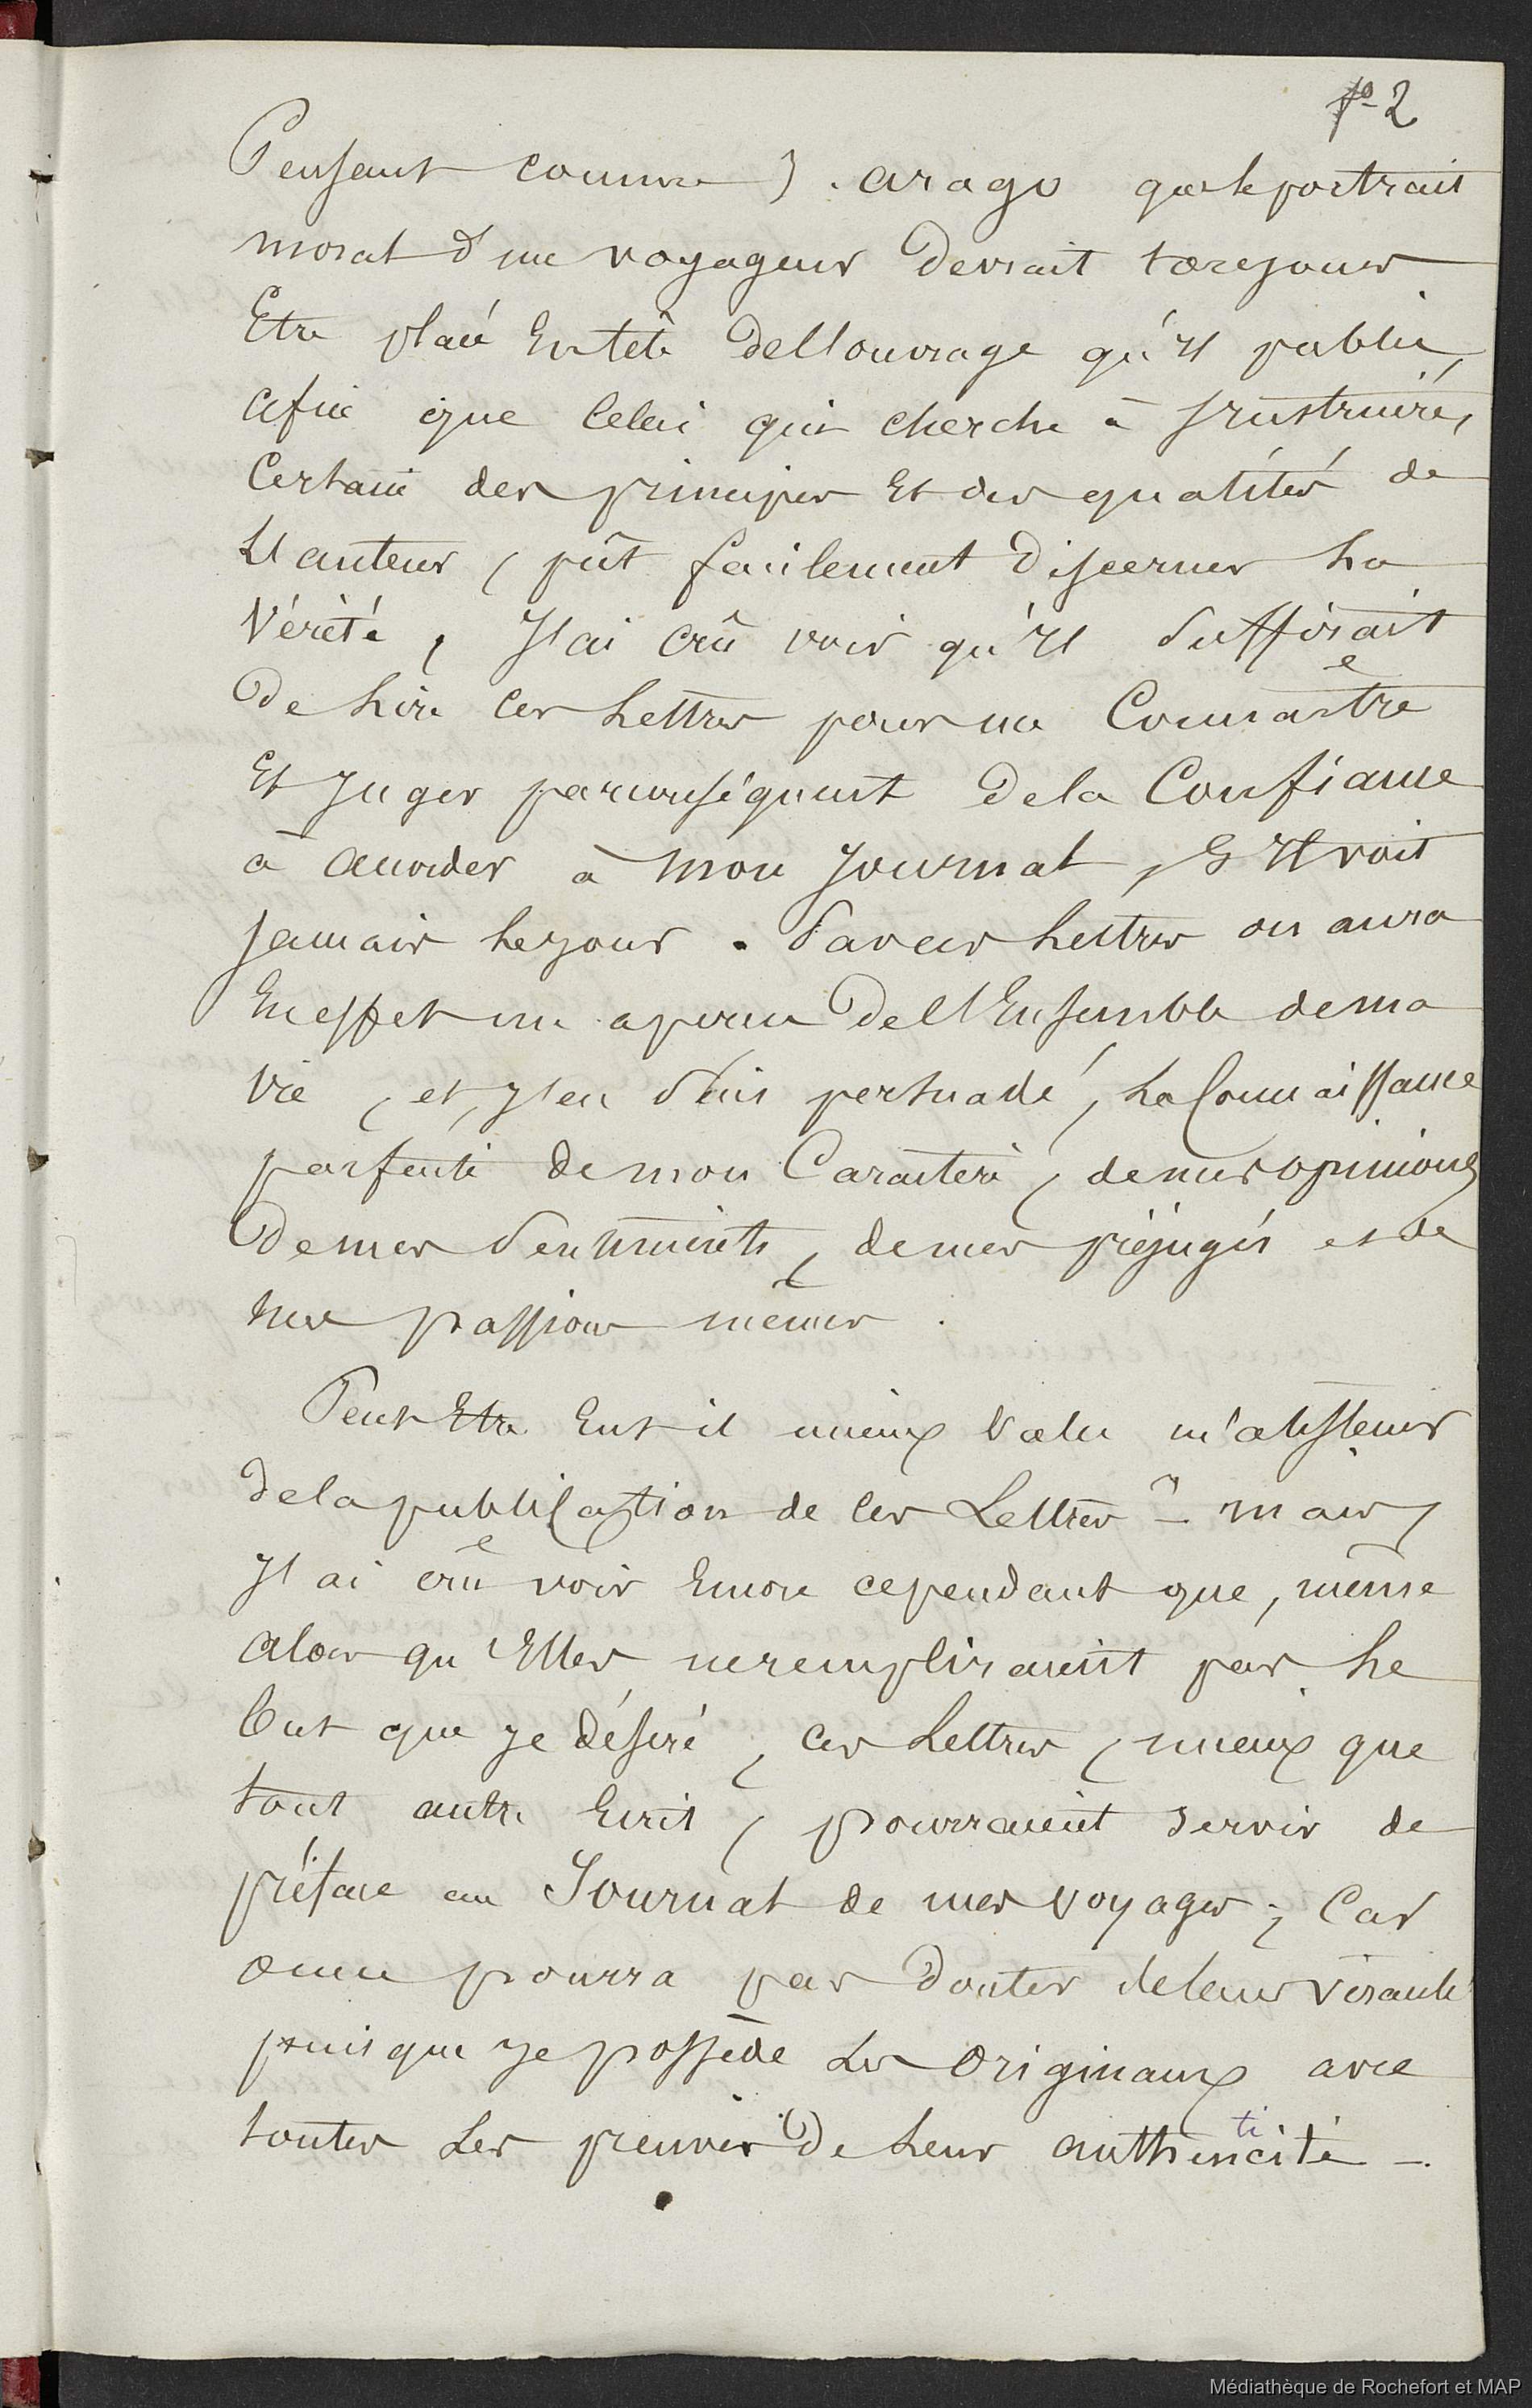 fo 2
Pensant comme J. arago que le portrait
moral d'un voyageur devrait toujours
Etre placé En tête de l'ouvrage qu'il publie,
afin que Celui qui cherche à s'instruire,
Certain des principes Et des qualités de
L'auteur, pût facilement discerner La
Vérité, J'ai crû voir qu'il Suffirait
De Lire Ces Lettres pour me Connaitre
Et Juger par conséquent de la Confiance
à accorder à Mon Journal, S'Il voit
Jamais Le jour. Par ces Lettres on aura
En effet un aperçu de l'Ensemble de ma
Vie, et, J'en Suis persuadé, La Connaissance
parfaite de mon Caractère, de mes opinions
De mes Sentiments, de mes préjugés et de
mes passions mêmes.
Peut Etre Eut il mieux Valu m'abstenir
de la publication de Ces Lettres - mais,
J'ai crû voir Encore cependant que, même
alors qu'Elles ne rempliraient pas Le
But que je désire, ces Lettres, mieux que
tout autre Ecrit, pourraient servir de
préface au Journal de mes Voyages; Car
on ne pourra pas Douter de leur véracité
puisque je possède Les Originaux avec
toutes Les preuves De Leur authenticité -.
Médiathèque de Rochefort et MAP